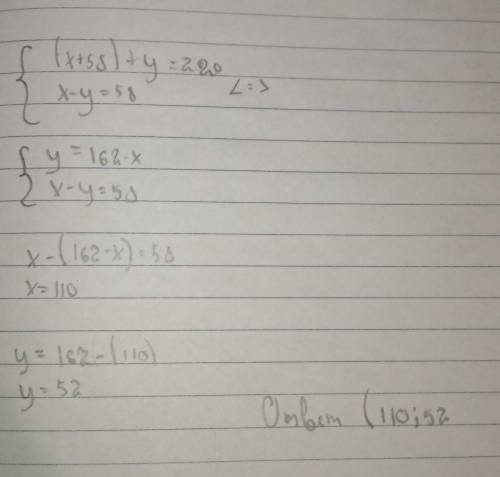 (x+58)+y=220
x-y=58 <=>
y=162-x
x-y=58
x-(162-x)=58
x=110
y=162-(110)
y=52
Ответ (110;52